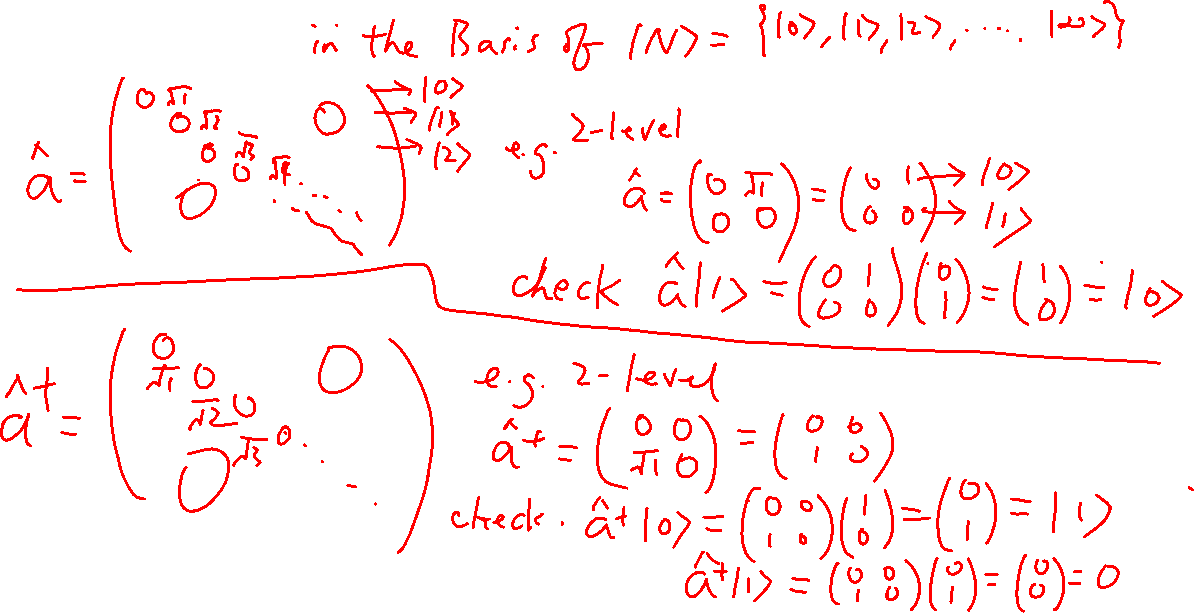 in the Basis of |N> = {|0>, |1>, |2>, ..... |∞>}
â = ( 0 √1 0 √2 0 √3 0 √4 ...... 0 0 ) → |0> → |1> → |2>
e.g. 2-level
â = ( 0 √1 ; 0 0 ) = ( 0 1 ; 0 0 ) → |0> → |1>
check â|1> = ( 0 1 ; 0 0 )( 0 ; 1 ) = ( 1 ; 0 ) = |0>
â† = ( 0 √1 0 √2 0 √3 0 ... 0 0 )
e.g. 2-level
â† = ( 0 0 ; √1 0 ) = ( 0 0 ; 1 0 )
check. â†|0> = ( 0 0 ; 1 0 )( 1 ; 0 ) = ( 0 ; 1 ) = |1>
â†|1> = ( 0 0 ; 1 0 )( 0 ; 1 ) = ( 0 ; 0 ) = 0